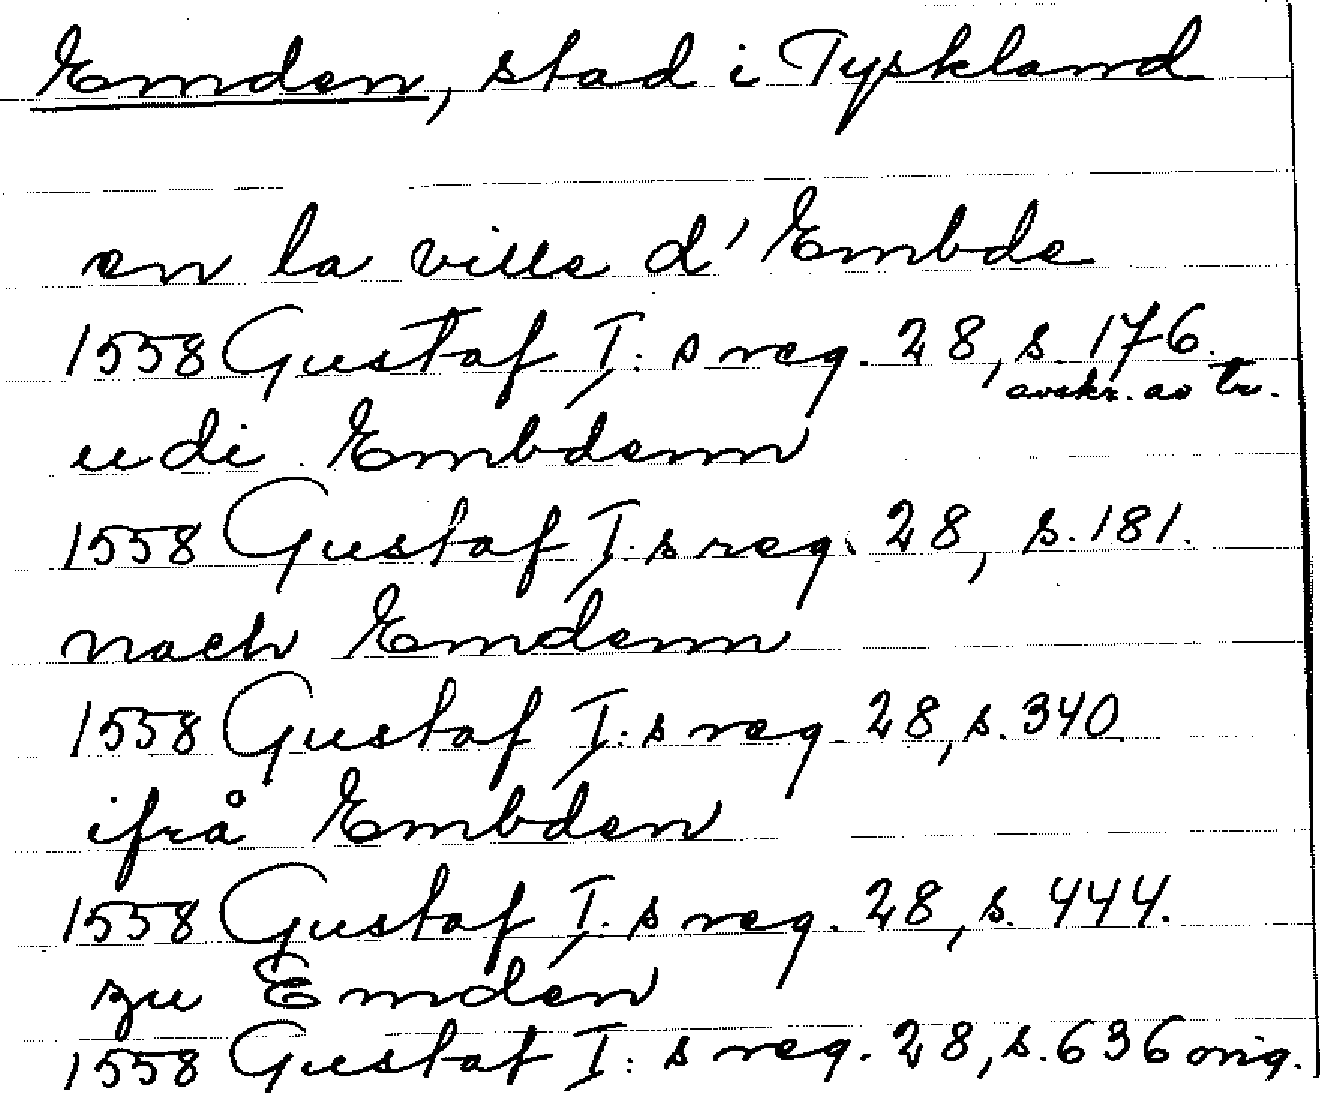 Emden, stad i Tyskland
en la ville d'Embde
1558 Gustaf I:s reg. 28, s. 176.
avskr. av tr.
udi Embdenn
1558 Gustaf I:s reg. 28, s. 181.
nach Emdenn
1558 Gustaf I:s reg. 28, s. 340
ifrå Embden
1558 Gustaf I:s reg. 28, s. 444.
zu Emden
1558 Gustaf I:s reg. 28, s. 636 orig.